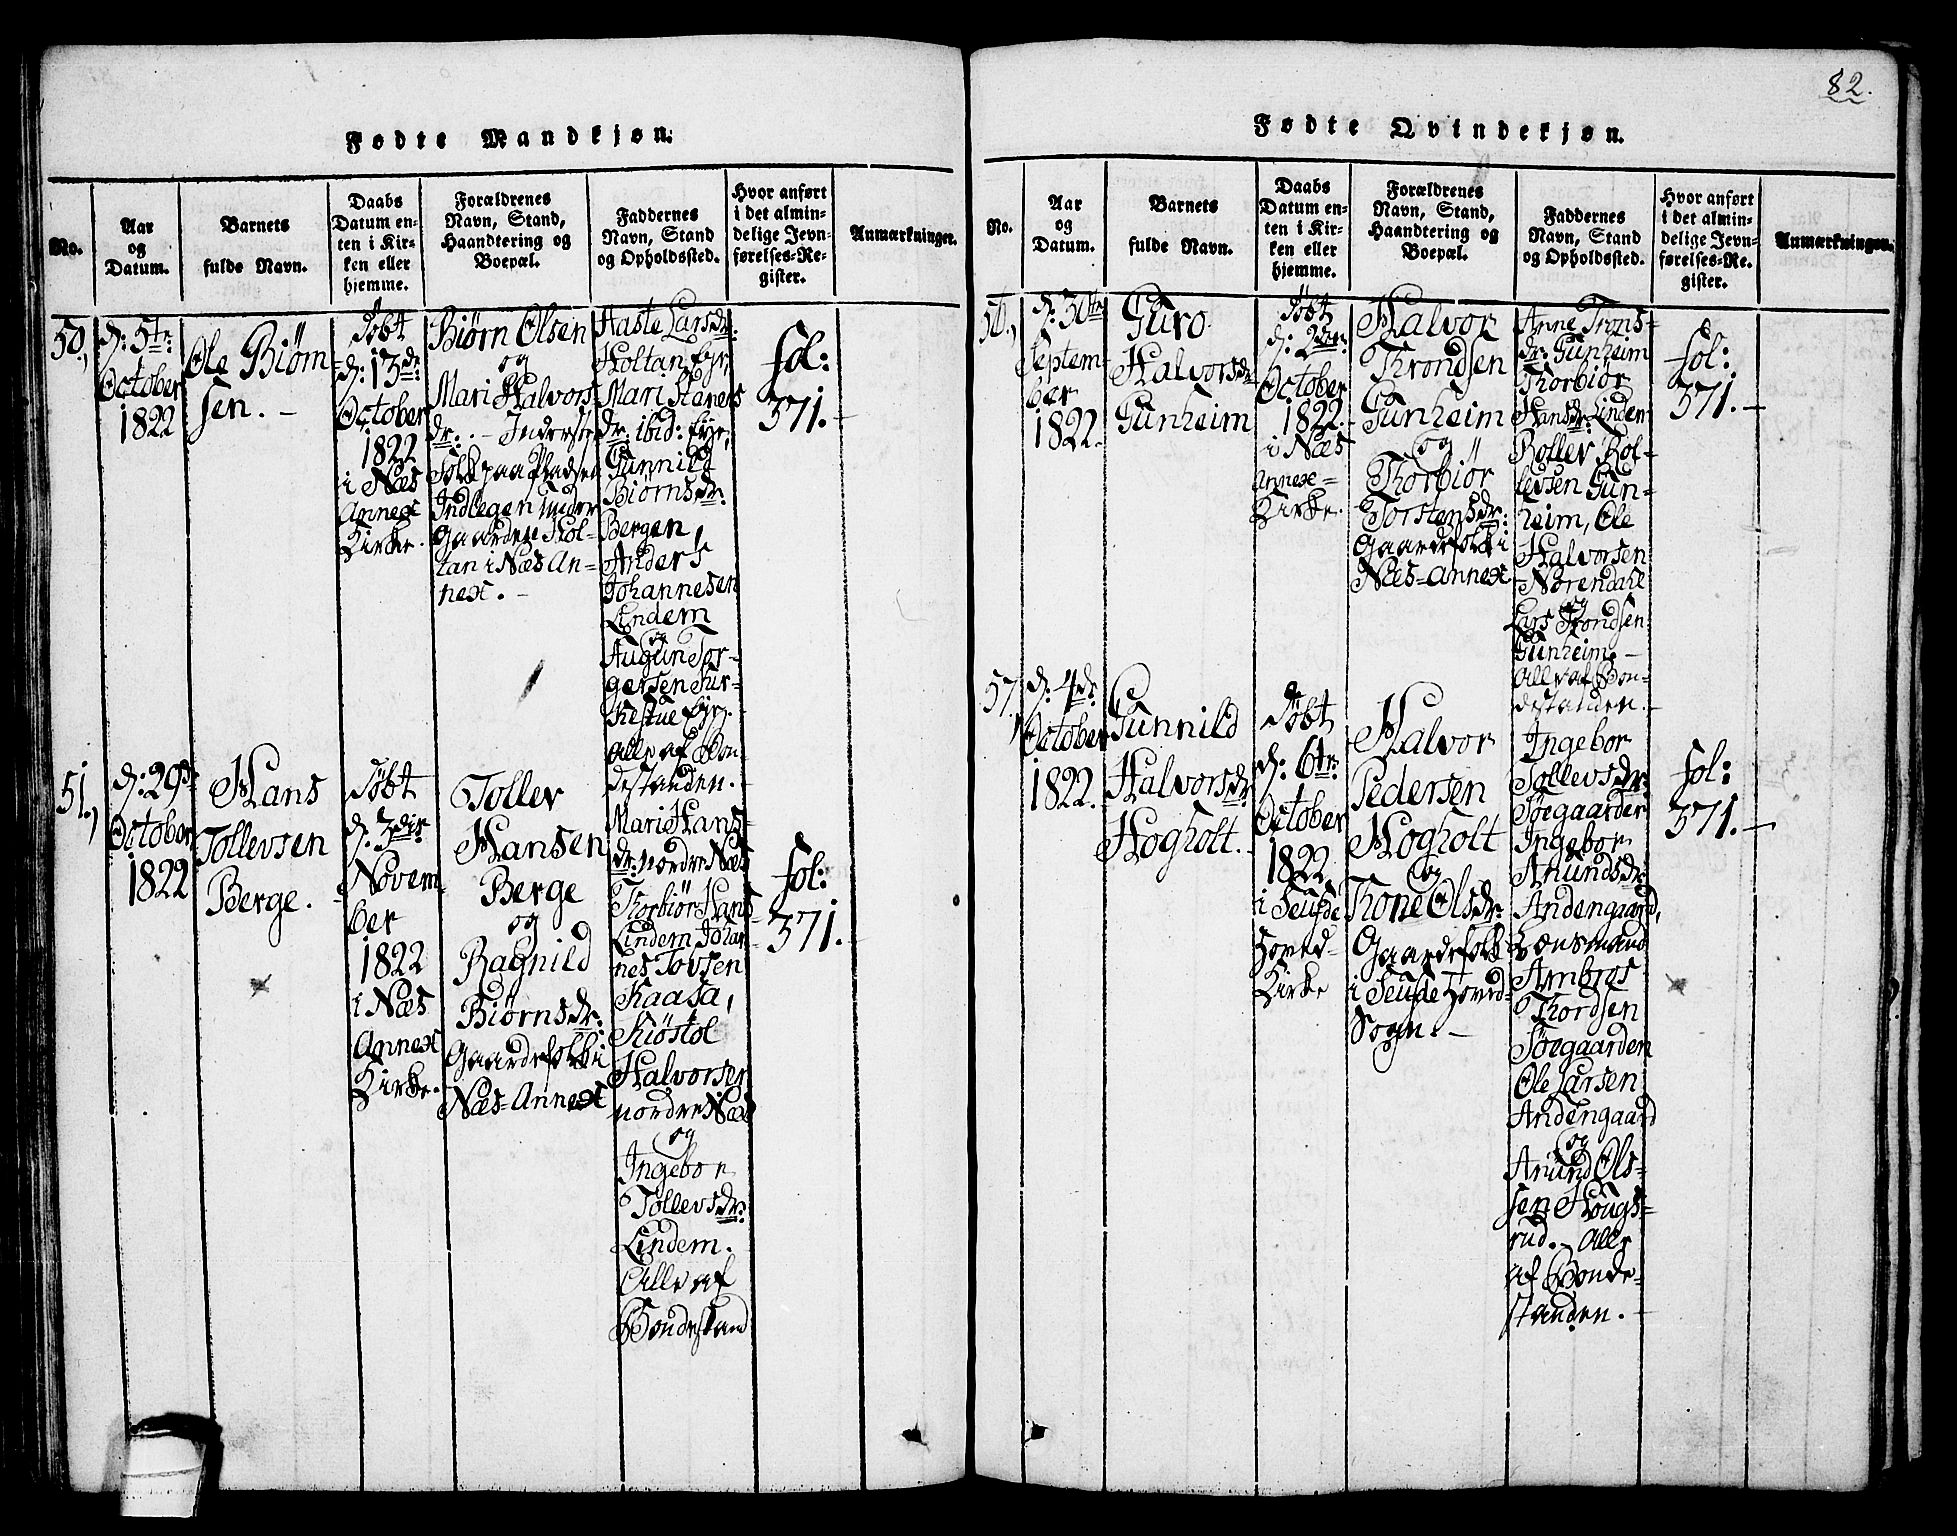 82.
Fødte Mandkjøn.
No.
Aar
og
Datum.
Barnets
fulde Navn.
Daabs
Datum en-
ten i Kir-
ken eller
hjemme.
Forældrenes
Navn, Stand,
Haandtering og
Boepæl.
Faddernes
Navn, Stand
og Opholdssted.
Hvor anført
i det almin-
delige Jevn-
førelses-Re-
gister.
Anmærkninger.
50,
d: 5te:
October
1822
Ole Biørn
sen. -
Døbt
d: 13de:
October
1822
i Næs
Annex
Kirke.
Biørn Olsen
og
Mari Halvors
dr: - Inderste
Folk paa Pladsen
Indlegen under
Gaarden Hol-
tan i Næs An-
nex. -
Aaste Larsdr:
Holtan Eyr,
Mari
dr: ibid: Eyr,
Gunnild
Biørnsdr:
Bergen,
Anders
Johannesen
Lindem
og
Augun Tor-
gersen
Eyr.
Alle af Bon
destanden. -
fol:
371. -
51,
d: 29de
October
1822
Hans
Tollevsen
Berge.
Døbt
d: 3die
Novem-
ber
1822
i Næs
Annex
Kirke.
Tollev
Hansen
Berge
og
Ragnild
Biørnsdr:
Gaardefolk i
Næs-Annex
Mari Hans-
dr: nordre Næs
Thorbiør Hans-
Lindem Johan-
nes Tovsen
Kaasa,
Kiøstol
Halvorsen
nordre Næs
og
Ingebor
Tollevsdr:
Lindem.
Alle af
Bondestand
fol:
371. -
Fødte Qvindekjøn.
No.
Aar
og
Datum.
Barnets
fulde Navn.
Daabs
Datum en-
ten i Kir-
ken eller
hjemme.
Forældrenes
Navn, Stand,
Haandtering og
Boepæl.
Faddernes
Navn, Stand
og Opholdssted.
Hvor anført
i det almin-
delige Jevn-
førelses-Re-
gister.
Anmærkninger.
56,
d: 30te
Septem-
ber
1822.
Guro
Halvorsdr
Gunheim
Døbt
d: 2den:
October
1822.
i Næs
Annex-
Kirke.
Halvor
Throndsen
Gunheim
og
Thorbiør
Torstensdr:
Gaardefolk i
Næs-Annex
Anne Trons-
dr: Gunheim
Thorbiør
Hansdr: Linden
Rollev Rol-
levsen Gun-
heim, Ole
Halvorsen
Norendahl
og
Lars Trondsen
Gunheim. -
Alle af Bon-
destanden. -
fol:
371. -
57,
d: 4de
October
1822.
Gunnild
Halvorsdr:
Hogholt.
Døbt
d: 6te:
October
1822
i Seufde
Hoved-
Kirke
Halvor
Pedersen
Hogholt
og
Thone Olsdr:
Gaardefolk
i Seufde Hoved-
Sogn. -
Ingebor
Tollevsdr:
Søegaarden
Ingebor
Anundsdr:
Andengaard,
Lensmand
Ambros
Thordsen
Søegaarden
Ole Larsen
Andengaard
og
Anund Ols-
sen Hougs-
rud. - Alle
af Bonde-
standen. -
fol:
371. -